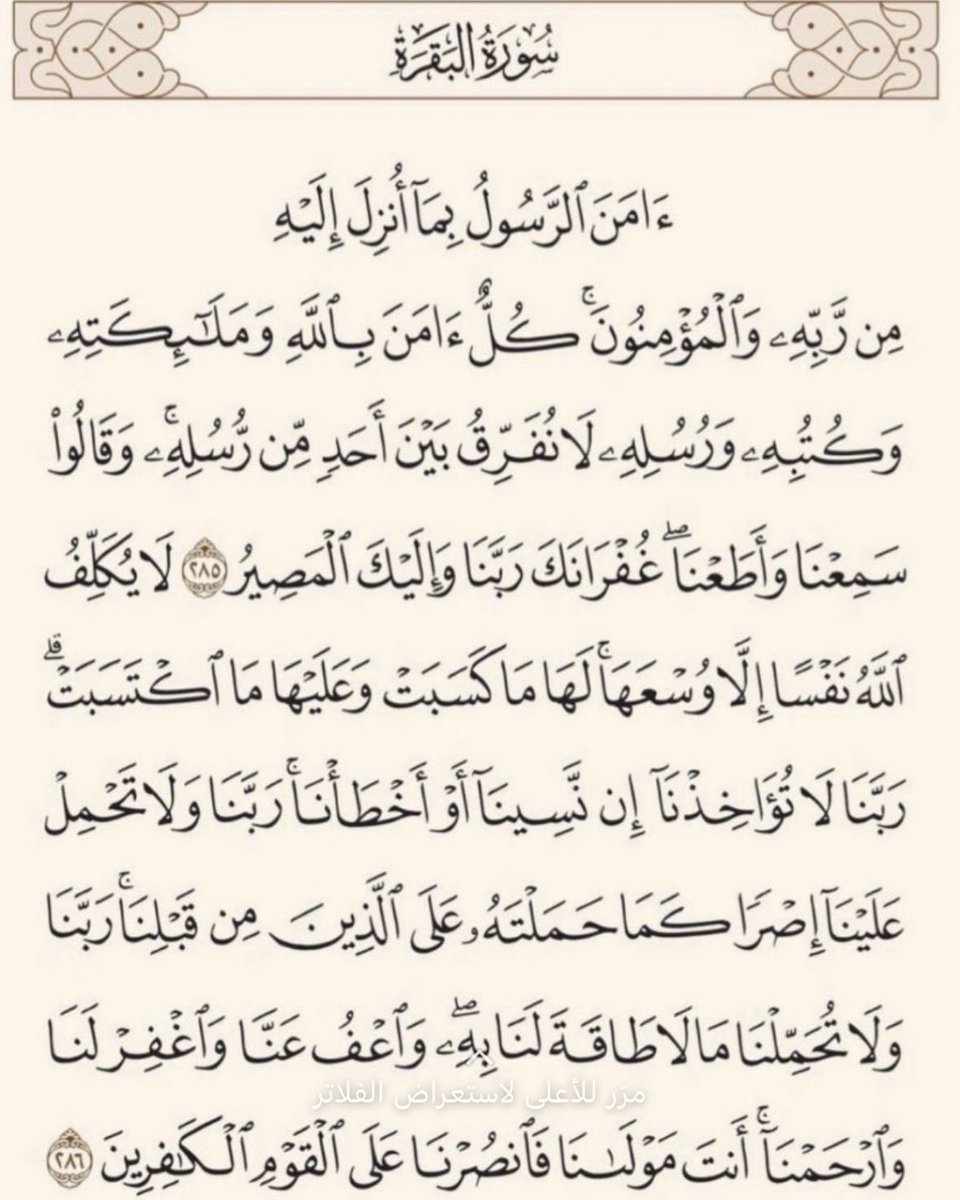 سُورَةُ البَقَرَةِ
ءَامَنَ ٱلرَّسُولُ بِمَآ أُنزِلَ إِلَيْهِ
مِن رَّبِّهِۦ وَٱلْمُؤْمِنُونَ ۚ كُلٌّ ءَامَنَ بِٱللَّهِ وَمَلَٰٓئِكَتِهِۦ
وَكُتُبِهِۦ وَرُسُلِهِۦ لَا نُفَرِّقُ بَيْنَ أَحَدٍ مِّن رُّسُلِهِۦ ۚ وَقَالُوا۟
سَمِعْنَا وَأَطَعْنَا ۖ غُفْرَانَكَ رَبَّنَا وَإِلَيْكَ ٱلْمَصِيرُ ٢٨٥ لَا يُكَلِّفُ
ٱللَّهُ نَفْسًا إِلَّا وُسْعَهَا ۚ لَهَا مَا كَسَبَتْ وَعَلَيْهَا مَا ٱكْتَسَبَتْ ۗ
رَبَّنَا لَا تُؤَاخِذْنَآ إِن نَّسِينَآ أَوْ أَخْطَأْنَا ۚ رَبَّنَا وَلَا تَحْمِلْ
عَلَيْنَآ إِصْرًا كَمَا حَمَلْتَهُۥ عَلَى ٱلَّذِينَ مِن قَبْلِنَا ۚ رَبَّنَا
وَلَا تُحَمِّلْنَا مَا لَا طَاقَةَ لَنَا بِهِۦ ۖ وَٱعْفُ عَنَّا وَٱغْفِرْ لَنَا
مرّر للأعلى لاستعراض الفلاتر
وَٱرْحَمْنَآ ۚ أَنتَ مَوْلَىٰنَا فَٱنصُرْنَا عَلَى ٱلْقَوْمِ ٱلْكَٰفِرِينَ ٢٨٦